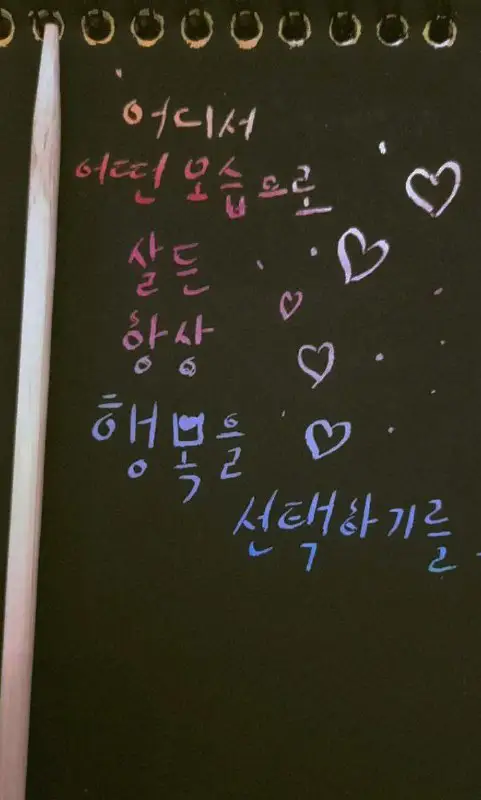 어디서
어떤 모습으로
살든
항상
행복을
선택하기를